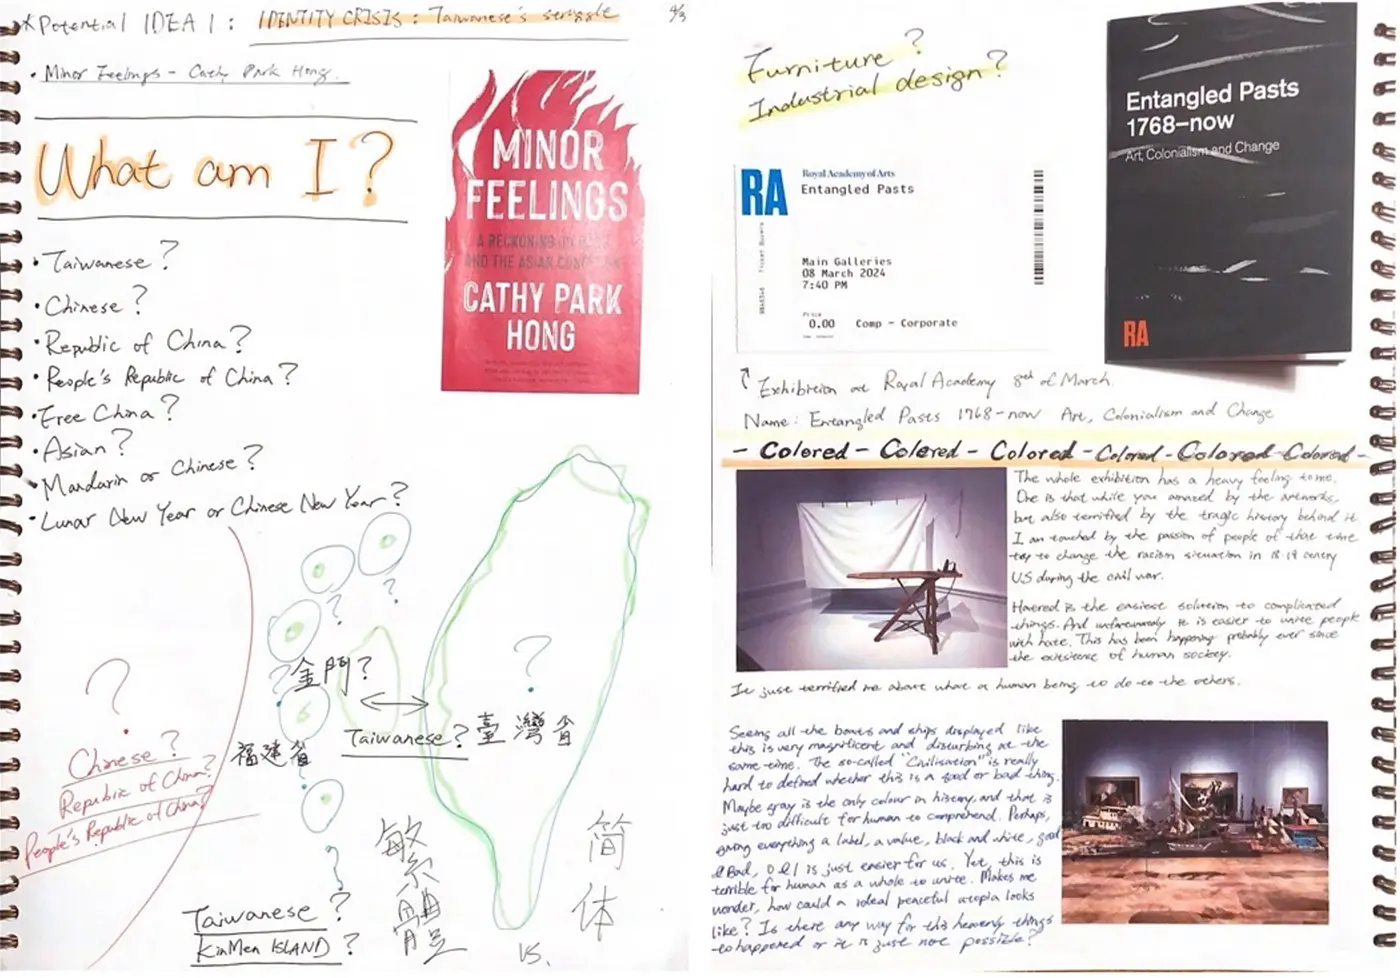 *Potential IDEA 1: IDENTITY CRISIS: Taiwanese's struggle
9/3
• Minor Feelings - Cathy Park Hong.
What am I?
• Taiwanese?
• Chinese?
• Republic of China?
• People's Republic of China?
• Free China?
• Asian?
• Mandarin or Chinese?
• Lunar New Year or Chinese New Year?
MINOR
FEELINGS
A RECKONING ON RACE
AND THE ASIAN CONDITION
CATHY PARK
HONG
?
?
?
?
金門?
福建省
Taiwanese?
臺灣省
?
Chinese?
Republic of China?
People's Republic of China?
?
Taiwanese?
KinMen ISLAND?
繁體
VS.
简体
Furniture?
Industrial design?
RA
Royal Academy of Arts
Entangled Pasts
Main Galleries
08 March 2024
7:40 PM
Price
0.00 Comp - Corporate
Entangled Pasts
1768–now
Art, Colonialism and Change
RA
Exhibition at Royal Academy 8th of March.
Name: Entangled Pasts 1768-now Art, Colonialism and Change
- Colored - Colored - Colored - Colored - Colored - Colored -
The whole exhibition has a heavy feeling to me.
One is that while you amazed by the artworks,
but also terrified by the tragic history behind it.
I am touched by the passion of people of that time
try to change the racism situation in 18-19 century
US during the civil war.
Hatered is the easiest solution to complicated
things. And unfortunately it is easier to unite people
with hate. This has been happening probably ever since
the existence of human society.
It just terrified me about what a human being to do to the others.
Seeing all the boats and ships displayed like
this is very magnificent and disturbing at the
same time. The so-called "Civilisation" is really
hard to defined whether this is a good or bad thing.
Maybe gray is the only colour in history, and that is
just too difficult for human to comprehend. Perhaps,
giving everything a label, a value, black and white, good
& Bad, 0 & 1 is just easier for us. Yet, this is
terrible for human as a whole to unite. Makes me
wonder, how could a ideal peaceful utopia looks
like? Is there any way for this heavenly things
to happened or it is just not possible?